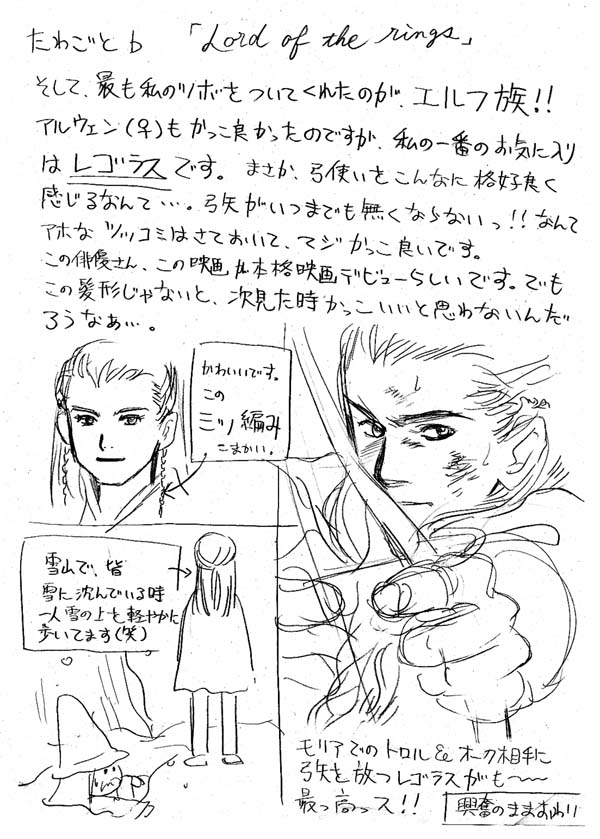 たわごと6 「Lord of the rings」
そして、最も私のツボをついてくれたのが、エルフ族!!
アルウェン(♀)もかっこ良かったのですが、私の一番のお気に入り
はレゴラスです。まさか、弓使いをこんなに格好良く
感じるなんて…。弓矢がいつまでも無くならないっ!!なんて
アホなツッコミはさておいて、マジかっこ良いです。
この俳優さん、この映画が本格映画デビューらしいです。でも
この髪形じゃないと、次見た時かっこいいと思わないんだ
ろうなぁ…。
かわいいです。
この
三ツ編み
こまかい。
雪山で、皆
雪に沈んでいる時
一人雪の上を軽やかに
歩いてます(笑)
モリアでのトロル&オーク相手に
弓矢を放つレゴラスがも〜〜
最っ高っス!!
興奮のままおわり